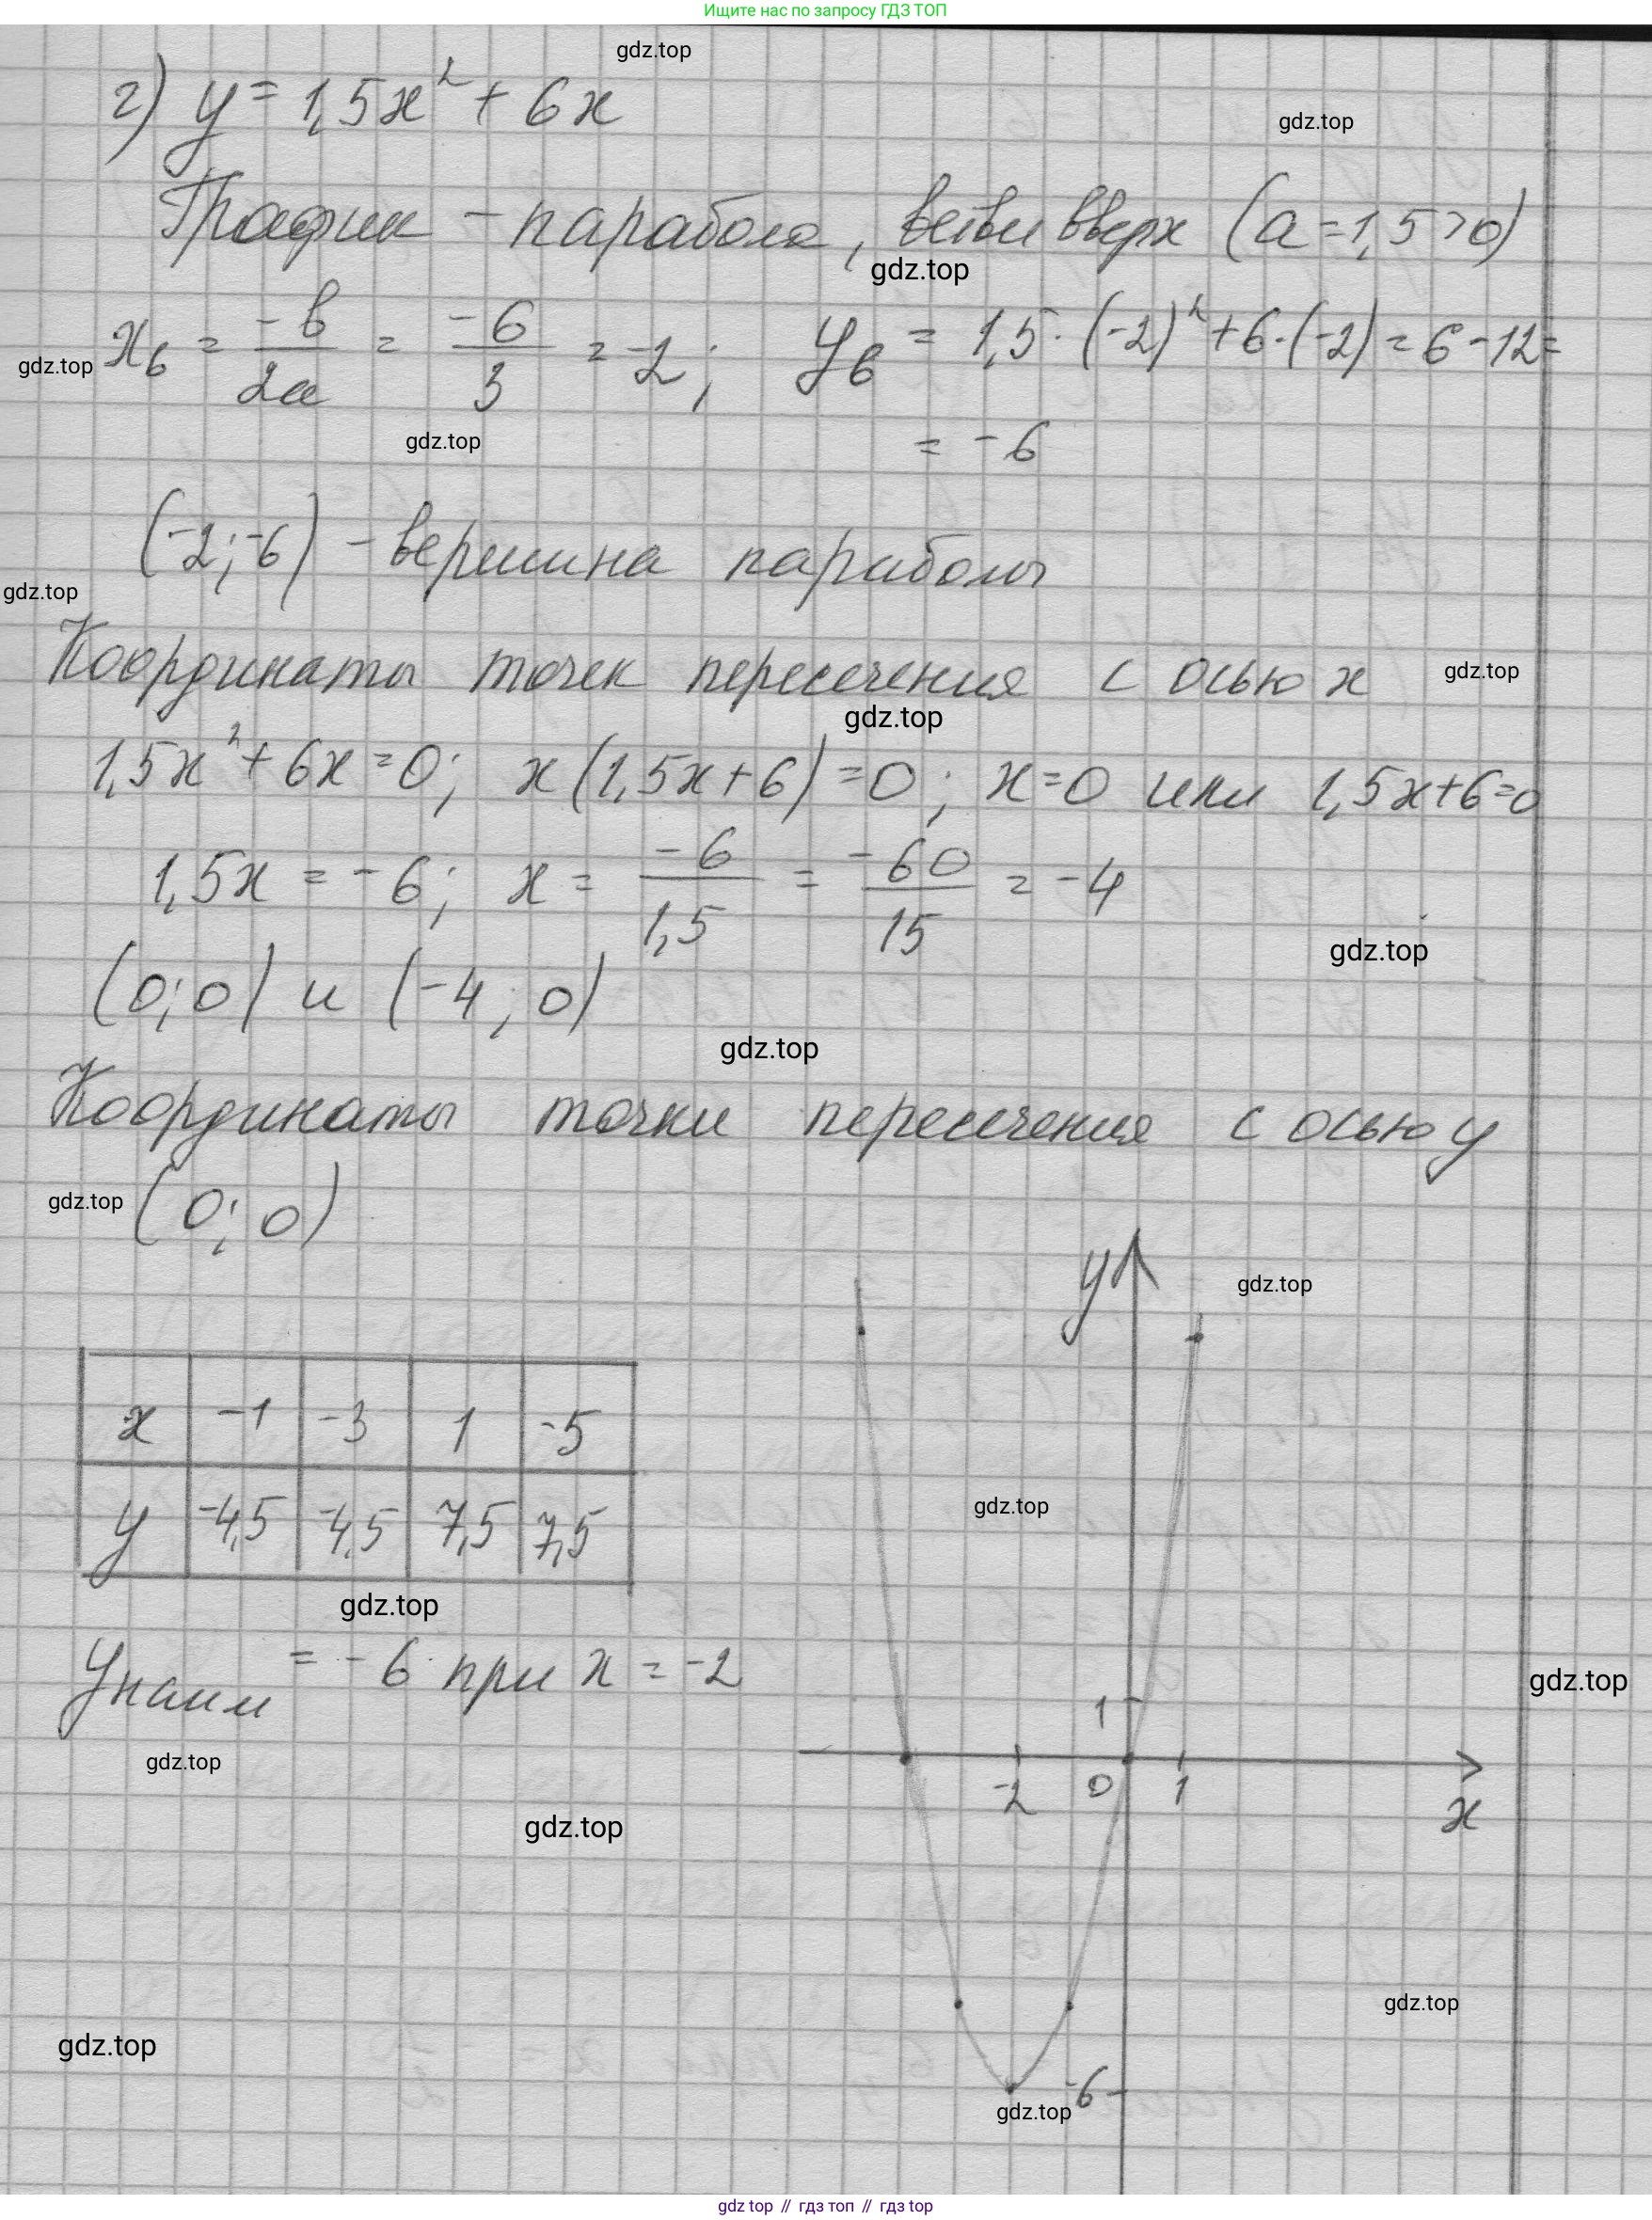 Ищите нас по запросу ГДЗ ТОП
gdz.top
г) y = 1,5x² + 6x
gdz.top
График - парабола, ветви вверх (a = 1,5 > 0)
gdz.top
xв = -b/2a = -6/3 = -2; yв = 1,5 · (-2)² + 6 · (-2) = 6 - 12 =
gdz.top
= -6
gdz.top
(-2; -6) - вершина параболы
gdz.top
Координаты точек пересечения с осью x
gdz.top
gdz.top
1,5x² + 6x = 0; x(1,5x + 6) = 0; x = 0 или 1,5x + 6 = 0
1,5x = -6; x = -6/1,5 = -60/15 = -4
gdz.top
(0; 0) и (-4; 0)
gdz.top
Координаты точки пересечения с осью y
gdz.top
(0; 0)
y
gdz.top
x -1 -3 1 -5
y -4,5 -4,5 7,5 7,5
gdz.top
gdz.top
yнаим = -6 при x = -2
gdz.top
1
gdz.top
-2 0 1
x
gdz.top
gdz.top
gdz.top
-6
gdz.top
gdz top // гдз топ // гдз top